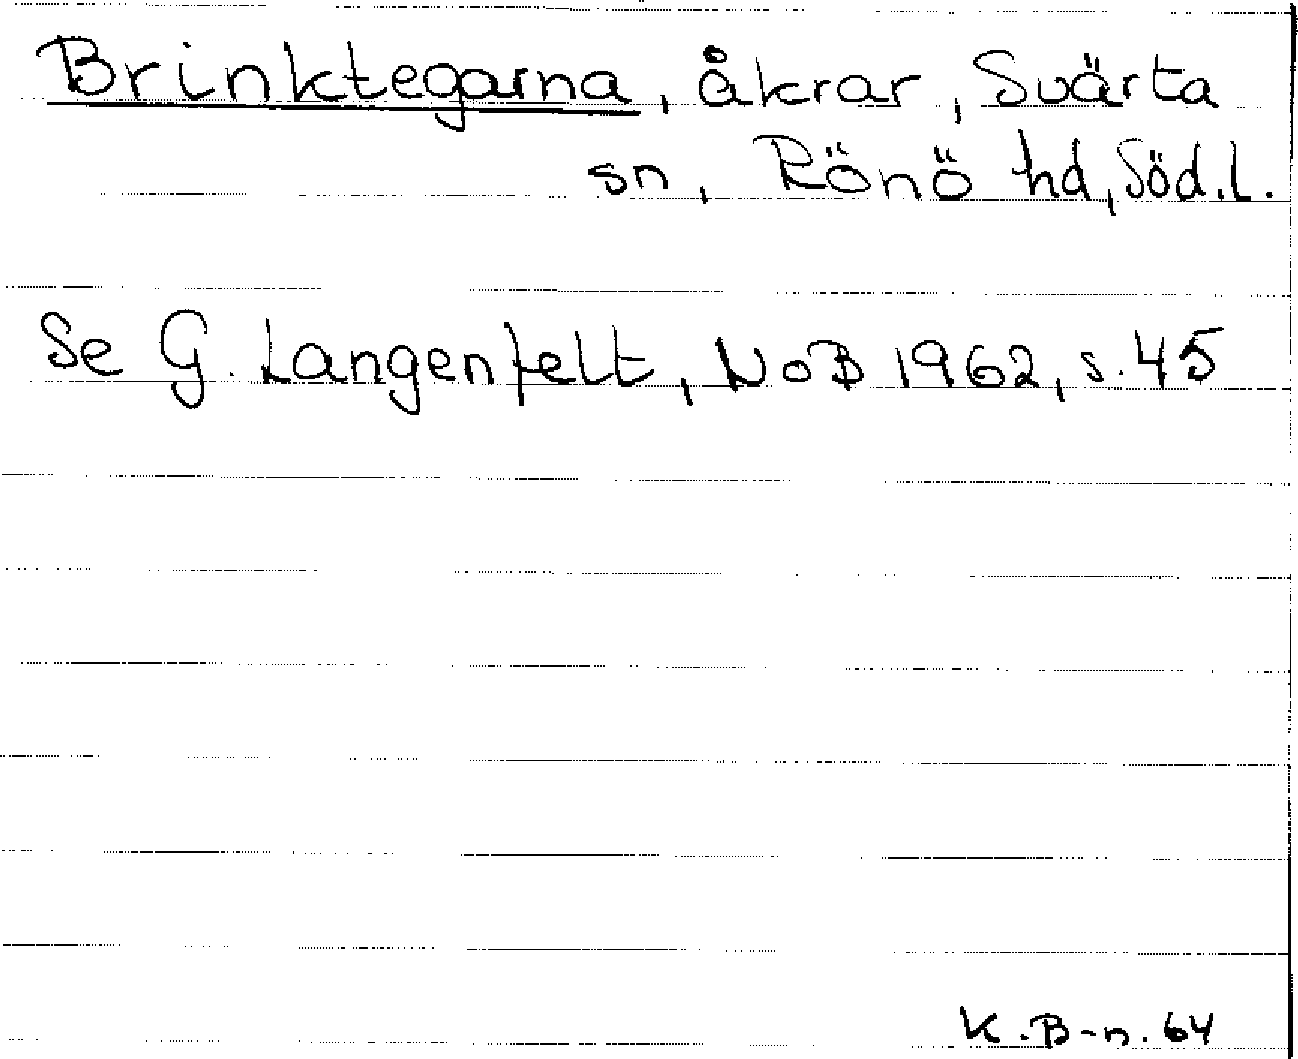 Brinktegarna, åkrar, Svärta
sn, Rönö hd, Söd.l.
Se G. Langenfelt, NoB 1962, s. 45
K.B-n. 64